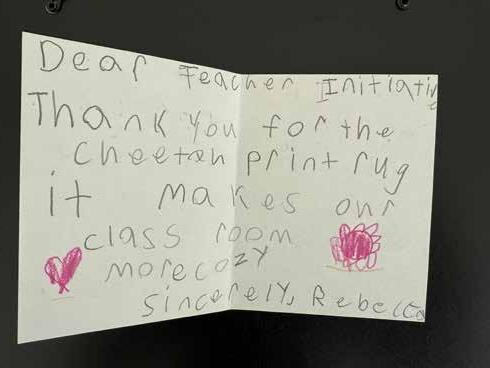 Dear Teacher Initiative
Thank you for the
cheetah print rug
it makes our
class room
more cozy
Sincerely, Rebecca